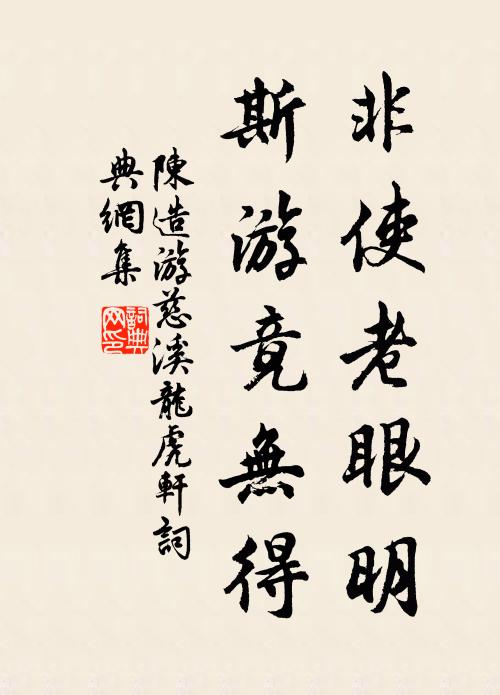 非使老眼明
斯游竟無得
陳造游慈溪龍虎軒詞
典網集
詞典
网印